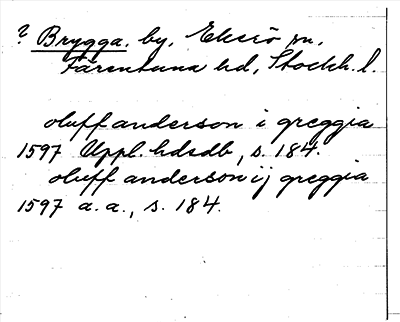 ? Brygga. by. Ekerö sn.
Färentuna hd, Stockh. l.
oluff anderson i greggia
1597 Uppl. hdsdb, s. 184.
oluff anderson ij greggia
1597 a. a., s. 184.